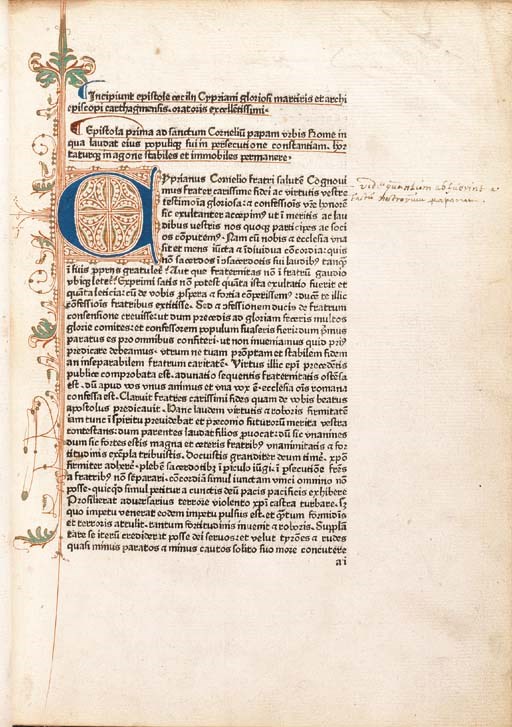 Incipiunt epistole cecilii Cypriani gloriosi martiris et archi
episcopi carthaginensis. oratoris excellētissimi.
Epistola prima ad sanctum Corneliū papam vrbis Rome in
qua laudat eius populiqꝫ sui in persecutione constantiam. hor
taturqꝫ in agone stabiles et immobiles permanere.
CYprianus Cornelio fratri salutē Cognoui
mus frater carissime fidei ac virtutis vestre
testimōia gloriosa: et confessiōis vr̄e hōnorē
sic exultanter accepimꝰ vt ī meritis ac lau
dibus vestris nos quoqꝫ participes ac soci
os cōputemꝰ. Nam cū nobis et ecclesia vna
sit et mens iūcta et īdiuidua cōcordia: quis
nō sacerdos ī sacerdotis sui laudibꝰ tanqꝫ
ī suis ꝓprijs gratulet? Aut que fraternitas nō ī fratrū gaudio
vbiqꝫ letet? Exprimi satis nō potest quāta ista exultatio fuerit et
quāta leticia: cū de vobis ꝓspera et fortia cōperissem. ducē te illic
cōfessiōis fratribus extitisse. Sed et ꝓfessionem ducis de fratrum
consensione creuisse: vt dum precedis ad gloriam feceris multos
glorie comites: et confessorem populum suaseris fieri: dum pͥmus
paratus es pro omnibus confiteri: vt non inueniamus quid priꝰ
predicare debeamus. vtrum ne tuam prōptam et stabilem fidem
an inseparabilem fratrum caritatē. Virtus illic epī precedētis
publice comprobata est. adunatio sequentis fraternitatis ostēsa
est. dū apud vos vnus animus et vna vox ē. ecclesia oīs romana
confessa est. Claruit fratres carissimi fides quam de vobis beatus
apostolus predicauit. Hanc laudem virtutis et roboris firmitatē
iam tunc ī spiritu preuidebat et preconio futurorū merita vestra
contestans: dum parentes laudat filios ꝓuocat: dū sic vnanimes
dum sic fortes estis magna et ceteris fratribꝰ vnanimitatis et for
titudinis exēpla tribuistis. Docuistis granditer deum timē. xp̄o
firmiter adherē. plebē sacerdotibꝫ ī piculo iūgi. ī psecutiōe fr̄es
a fratribꝰ nō separari. cōcordiā simul iunctam vinci omnino nō
posse. quicqd simul petitur a cunctis deū pacis pacificis exhibere
Prosilierat aduersarius terrore violento xp̄i castra turbare. sꝫ
quo impetu venerat eodem impetu pulsus est. et qͣtum formidis
et terroris attulit. tantum fortitudinis inuenit et roboris. Supplā
tare se iterū crediderat posse dei seruos: et velut tyrōes et rudes
quasi minus paratos et minus cautos solito suo more concutere
a i